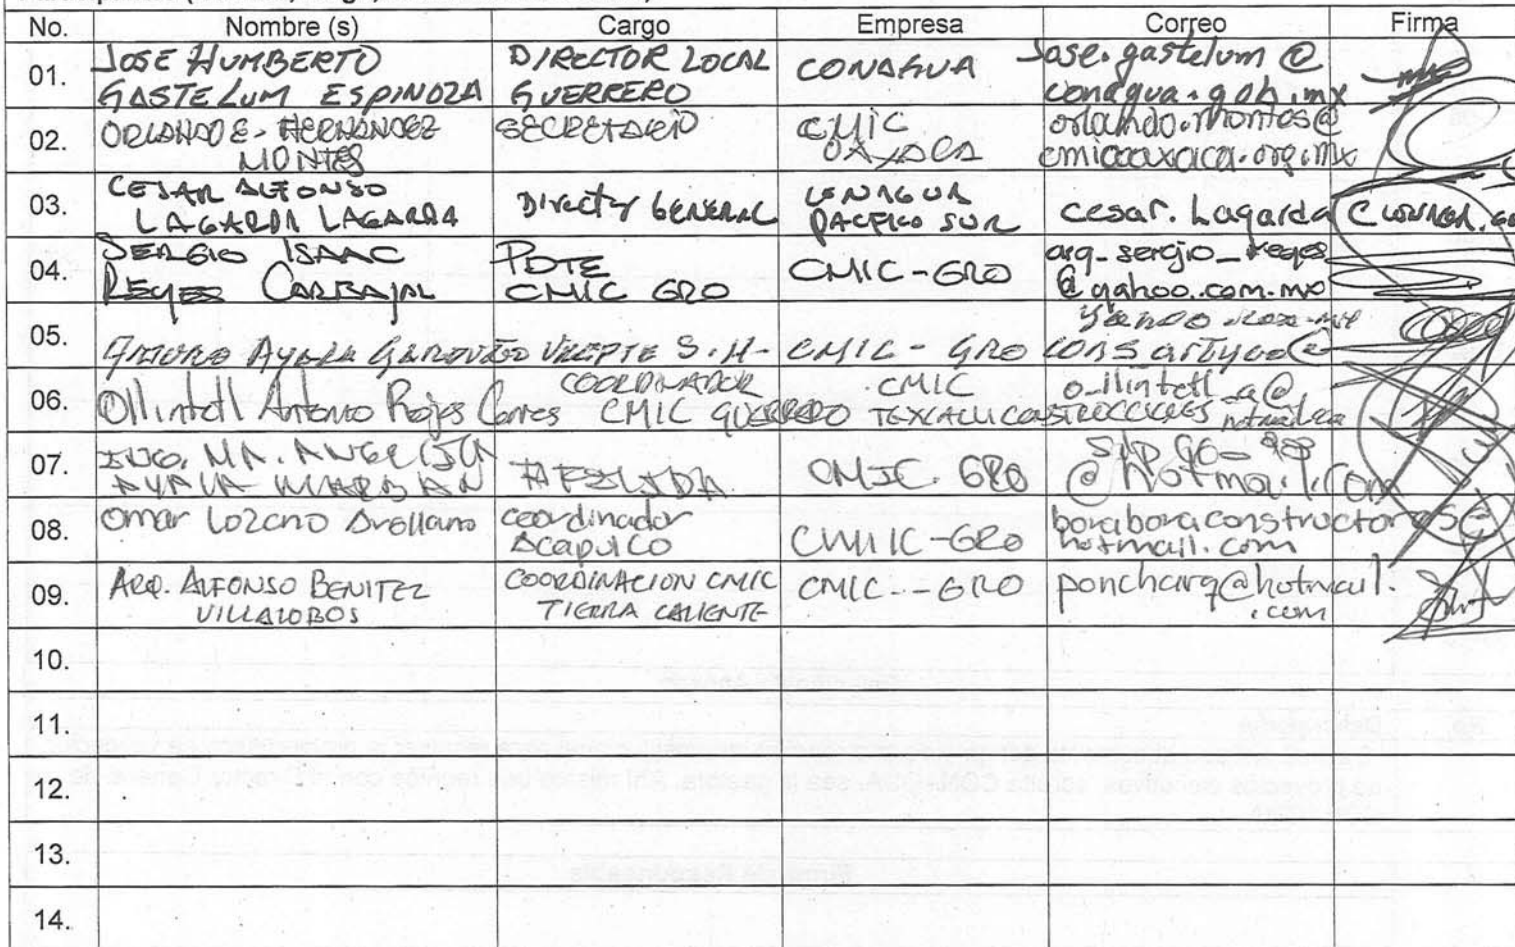 No. Nombre (s) Cargo Empresa Correo Firma
01. JOSE HUMBERTO GASTELUM ESPINOZA DIRECTOR LOCAL GUERRERO CONAGUA Jose.gastelum@conagua.gob.mx
02. ORLANDO E. HERNÁNDEZ MONTES SECRETARIO CMIC OAXACA orlando.montes@cmicoaxaca.org.mx
03. CESAR ALFONSO LAGARDA LAGARDA Director GENERAL CONAGUA PACIFICO SUR cesar.Lagarda@CONAGUA.
04. SERGIO ISAAC REYES CARBAJAL PDTE CMIC GRO CMIC-GRO arq_sergio_reyes@yahoo.com.mx
05. ARTURO AYALA VICEPTE S.H- CMIC-GRO consartyco@
06. Ollintetl Antonio Rojas COORDINADOR CMIC GUERRERO CMIC TEXCALLI CONSTRUCCIONES o_llintetl_a@
07. ING. MA. AYALA AFILIADA CMIC. GRO @hotmail.com
08. Omar Lozano Arellano coordinador Acapulco CMIC-GRO boraboraconstructores@hotmail.com
09. ARQ. ALFONSO BENITEZ VILLALOBOS COORDINACION CMIC TIERRA CALIENTE CMIC--GRO poncharq@hotmail.com
10.
11.
12.
13.
14.